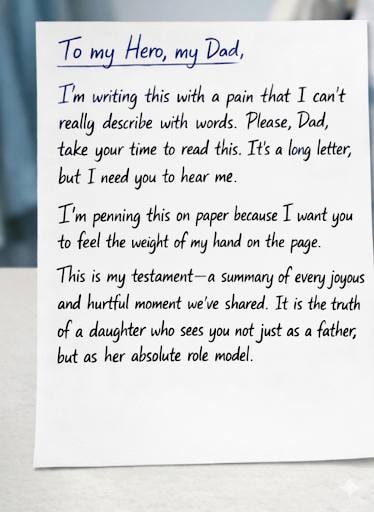 To my Hero, my Dad,
I'm writing this with a pain that I can't
really describe with words. Please, Dad,
take your time to read this. It's a long letter,
but I need you to hear me.
I'm penning this on paper because I want you
to feel the weight of my hand on the page.
This is my testament—a summary of every joyous
and hurtful moment we've shared. It is the truth
of a daughter who sees you not just as a father,
but as her absolute role model.